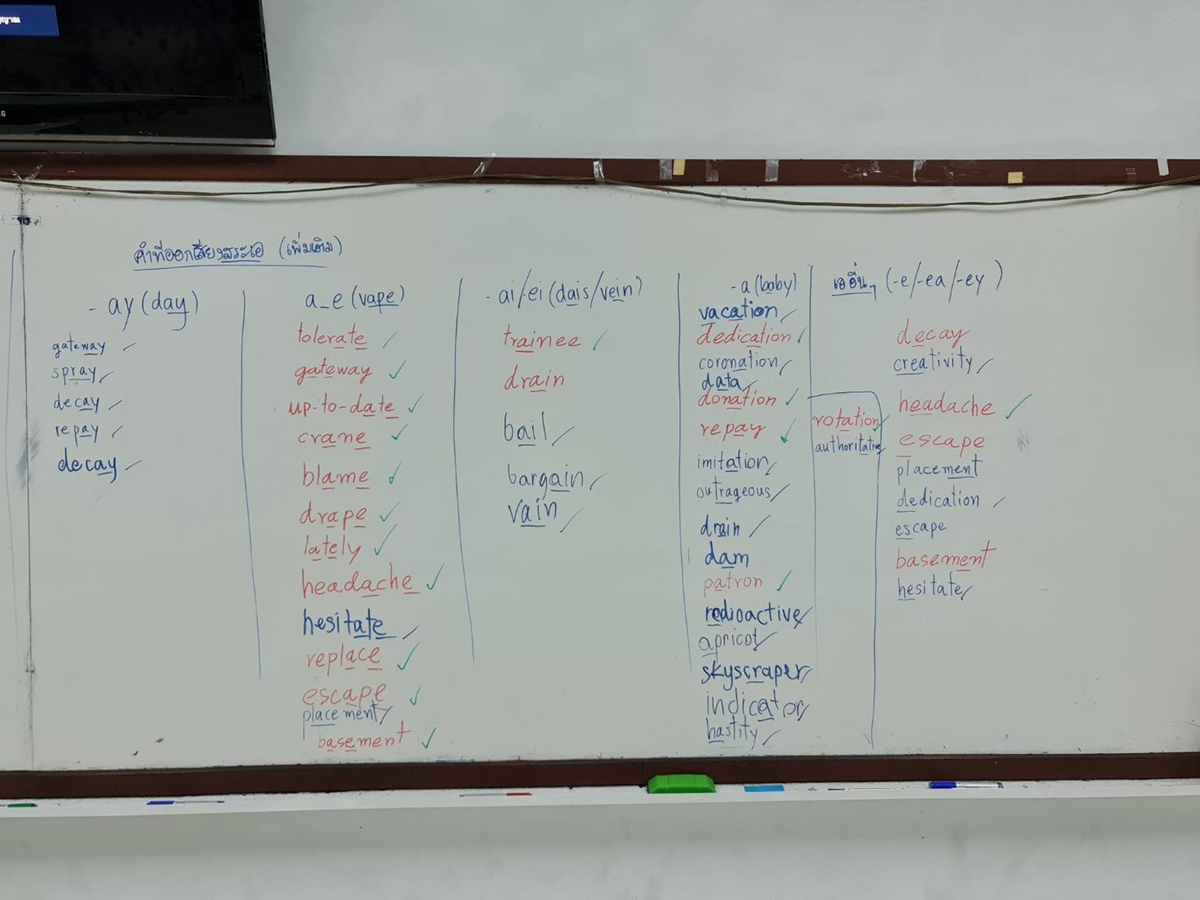 คำที่ออกเสียงสระเอ (เพิ่มเติม)
- ay (day)
gateway
spray
decay
repay
decay
a_e (vape)
tolerate
gateway
up-to-date
crane
blame
drape
lately
headache
hesitate
replace
escape
placement
basement
- ai/ei (dais/vein)
trainee
drain
bail
bargain
vain
- a (baby)
vacation
dedication
coronation
data
donation
repay
imitation
outrageous
drain
dam
patron
radioactive
apricot
skyscraper
indicator
hastity
rotation
authoritative
เออื่นๆ (-e/-ea/-ey)
decay
creativity
headache
escape
placement
dedication
escape
basement
hesitate